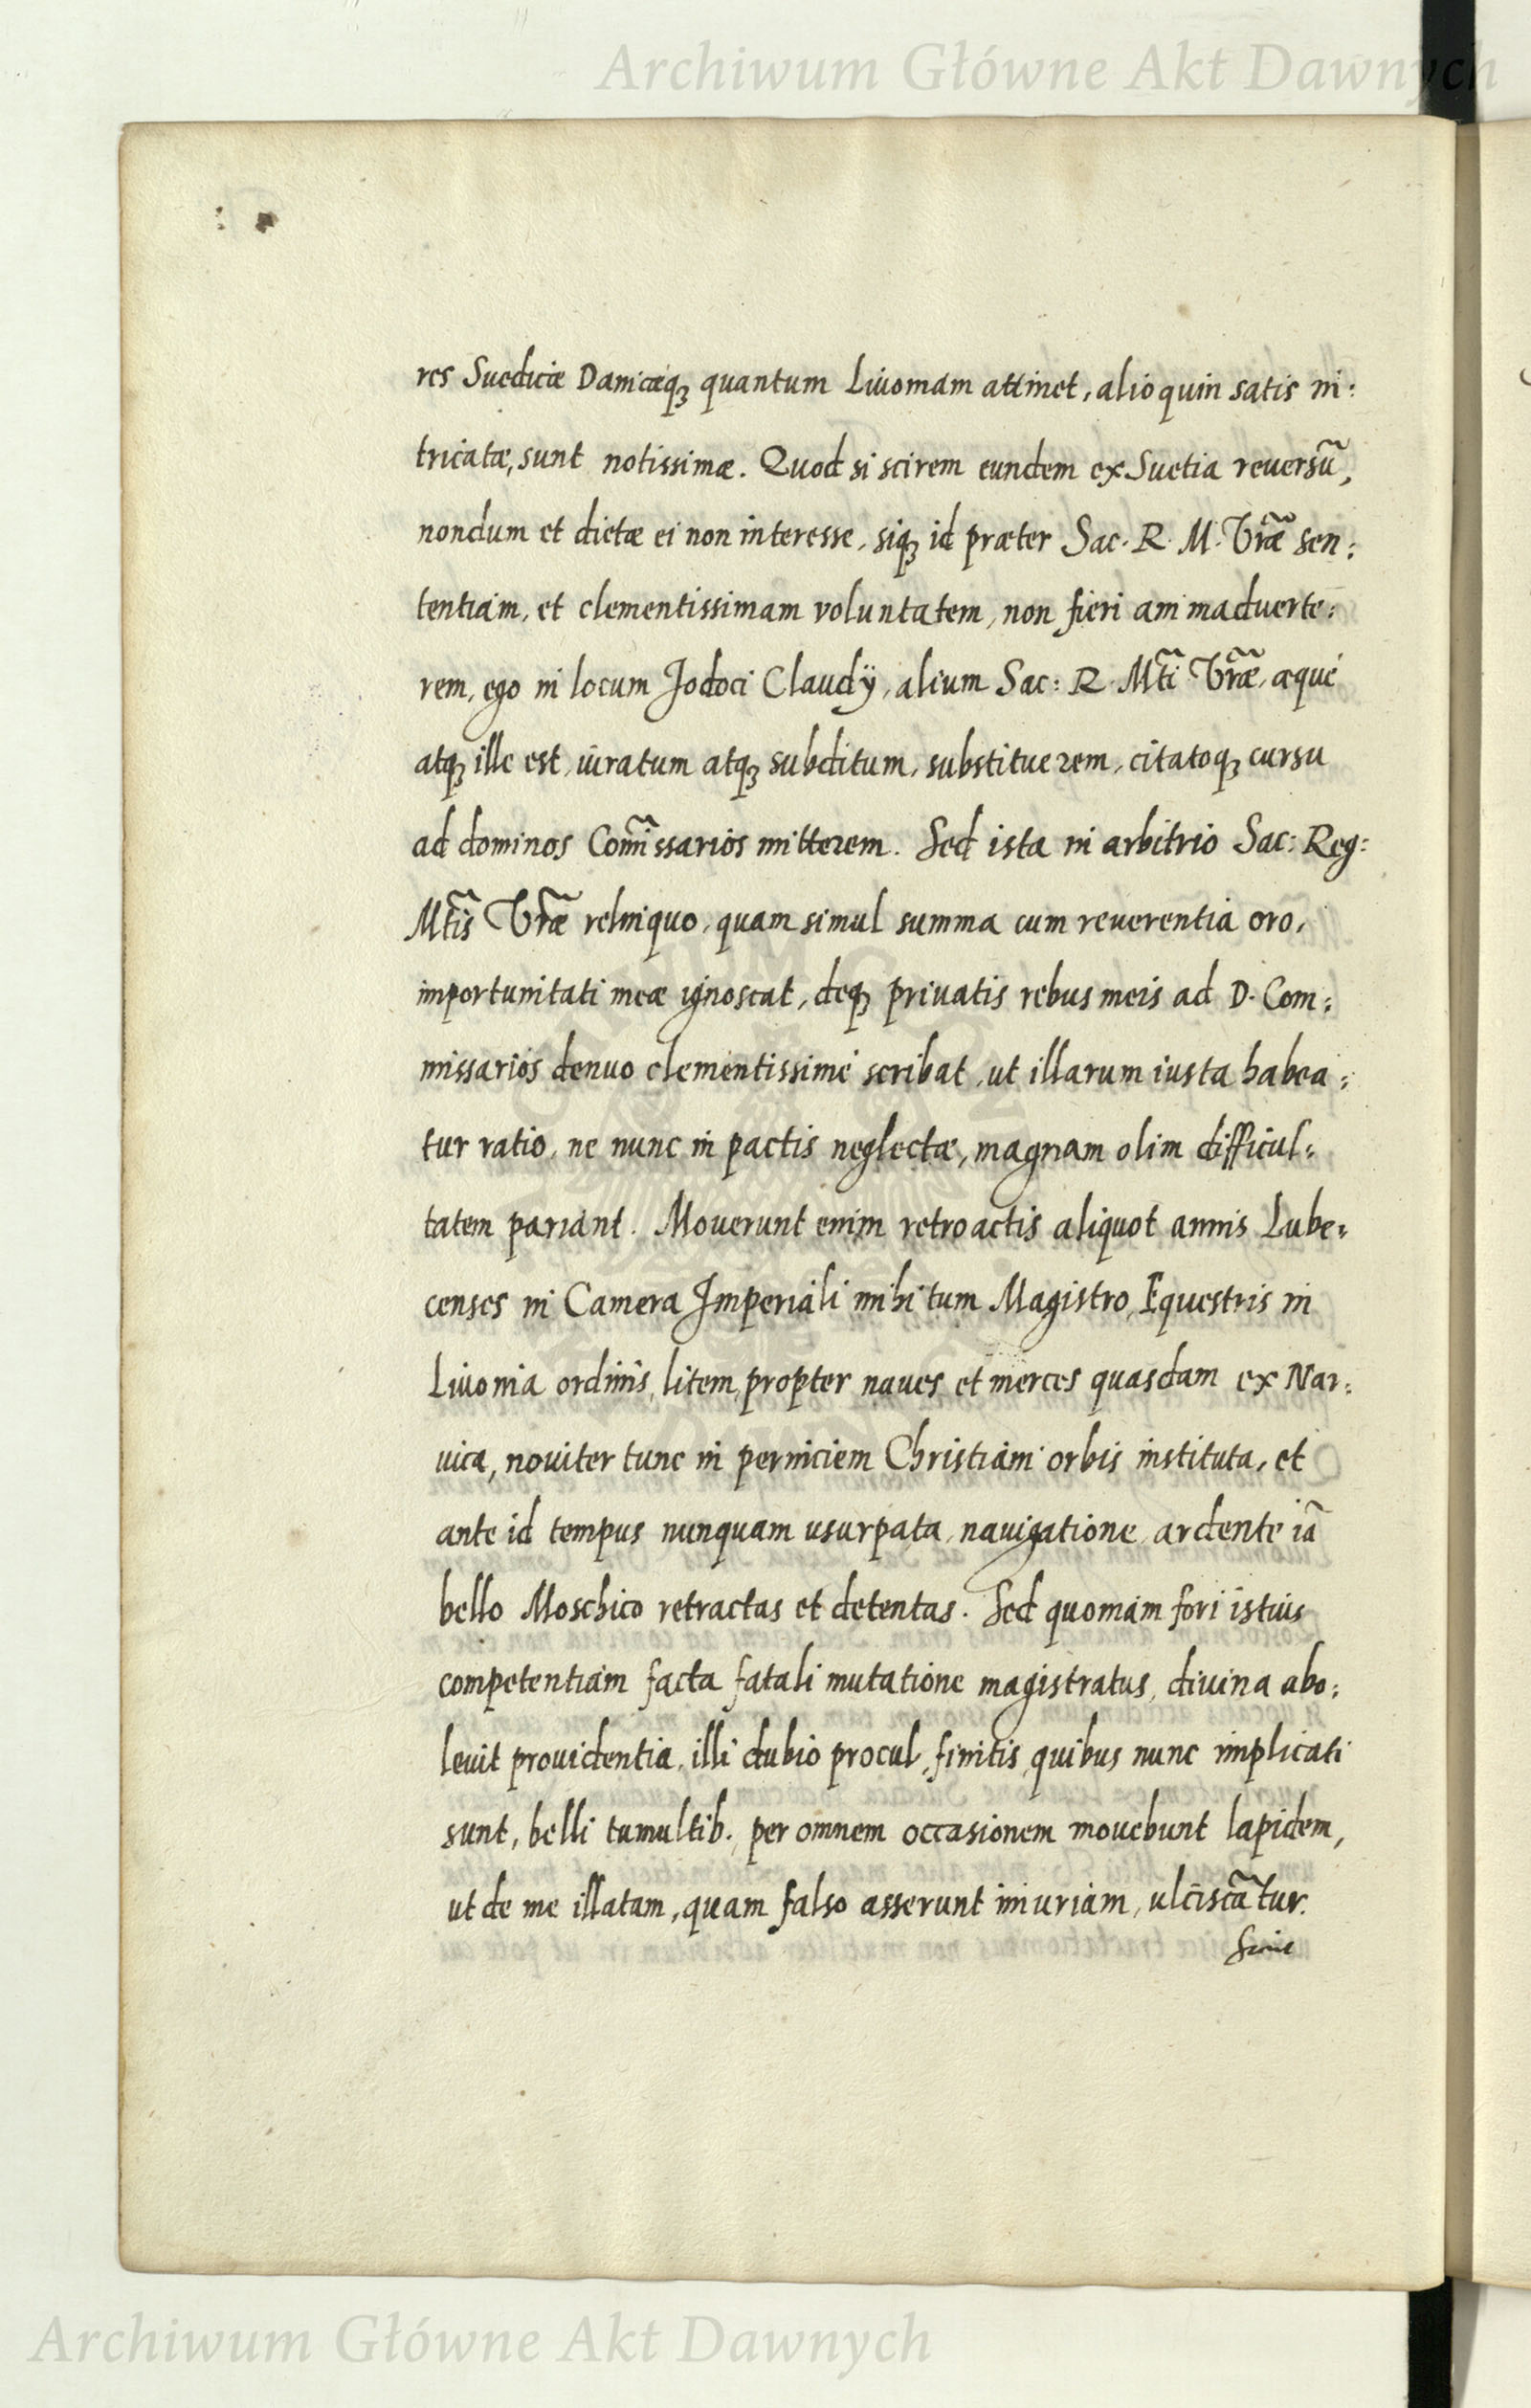 Archiwum Główne Akt Dawnych
res Suedicæ Danicæq₃ quantum Liuoniam attinet, alioquin satis in:
tricatæ, sunt notissimæ. Quod si scirem eundem ex Suetia reuersũ,
nondum et dictæ ei non interesse, siq₃ id præter Sac. R. M. Vr̃æ sen:
tentiam, et clementissimam voluntatem, non fieri animaduerte:
rem, ego in locum Jodoci Claudÿ, alium Sac: R. Mt̃i Vr̃æ, æque
atq₃ ille est, iuratum atq₃ subditum, substituerem, citatoq₃ cursu
ad dominos Com̃issarios mitterem. Sed ista in arbitrio Sac: Reg:
Mt̃is Vr̃æ relinquo, quam simul summa cum reuerentia oro,
importunitati meæ ignoscat, deq₃ priuatis rebus meis ad D. Com:
missarios denuo clementissimè scribat, ut illarum iusta habea:
tur ratio, ne nunc in pactis neglectæ, magnam olim difficul:
tatem pariant. Mouerunt enim retroactis aliquot annis Lube:
censes in Camera Imperiali mihi tum Magistro Equestris in
Liuonia ordinis, litem, propter naues et merces quasdam ex Nar:
uica, nouiter tunc in perniciem Christiani orbis instituta, et
ante id tempus nunquam usurpata, nauigatione, ardente iã
bello Moschico retractas et detentas. Sed quoniam fori istius
competentiam facta fatali mutatione magistratus, diuina abo:
leuit prouidentia, illi dubio procul, finitis, quibus nunc implicati
sunt, belli tumultib. per omnem occasionem mouebunt lapidem,
ut de me illatam, quam falso asserunt iniuriam, ulciscãtur.
Archiwum Główne Akt Dawnych